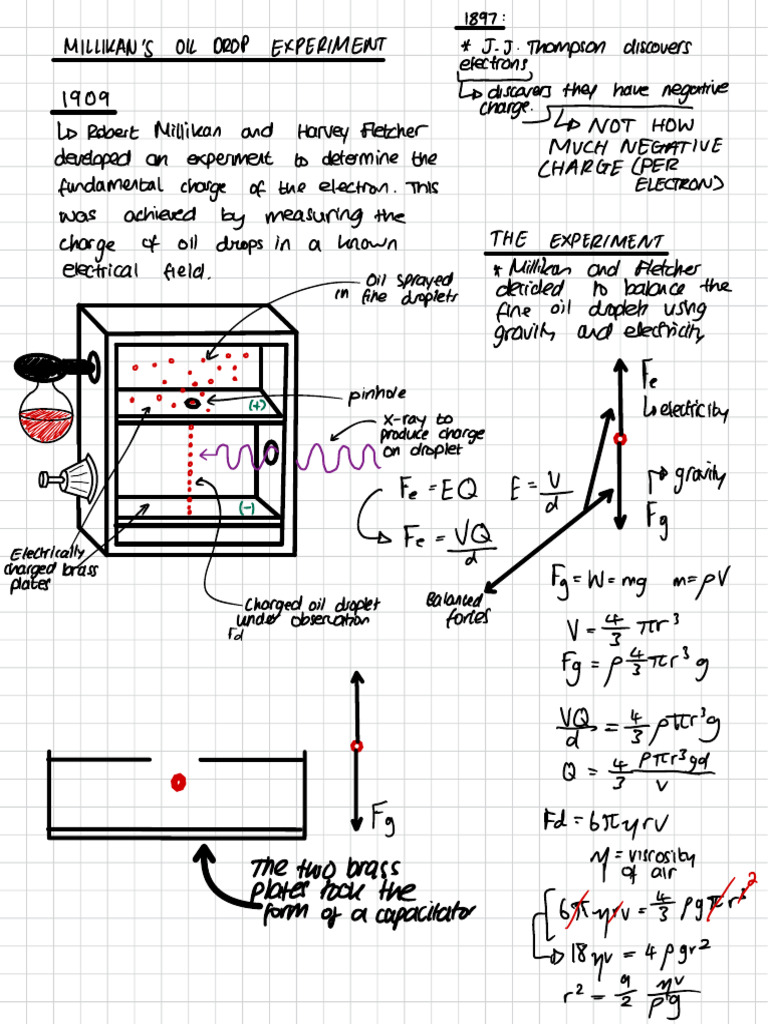 MILLIKAN'S OIL DROP EXPERIMENT
1909
↳ Robert Millikan and Harvey Fletcher
developed an experiment to determine the
fundamental charge of the electron. This
was achieved by measuring the
charge of oil drops in a known
electrical field.
1897:
* J.J. Thompson discovers
electrons
↳ discovers they have negative
charge.
↳ NOT HOW
MUCH NEGATIVE
CHARGE (PER
ELECTRON)
THE EXPERIMENT
* Millikan and Fletcher
decided to balance the
fine oil droplets using
gravity and electricity
Oil sprayed
in fine droplets
pinhole
(+)
x-ray to
produce charge
on droplet
(-)
Electrically
charged brass
plates
Charged oil droplet
under observation
Fd
Fe
↳ electricity
gravity
Fg
Balanced
forces
Fe = EQ E = V/d
Fe = VQ/d
Fg = W = mg m = ρV
V = 4/3 πr³
Fg = ρ 4/3 πr³ g
VQ/d = 4/3 ρπr³g
Q = 4/3 ρπr³gd/V
Fd = 6πηrv
η = viscosity
of air
6πηrv = 4/3 ρgπr³ 2
18ηv = 4ρgr²
r² = 9/2 ηv/ρg
Fg
The two brass
plates took the
form of a capacitator